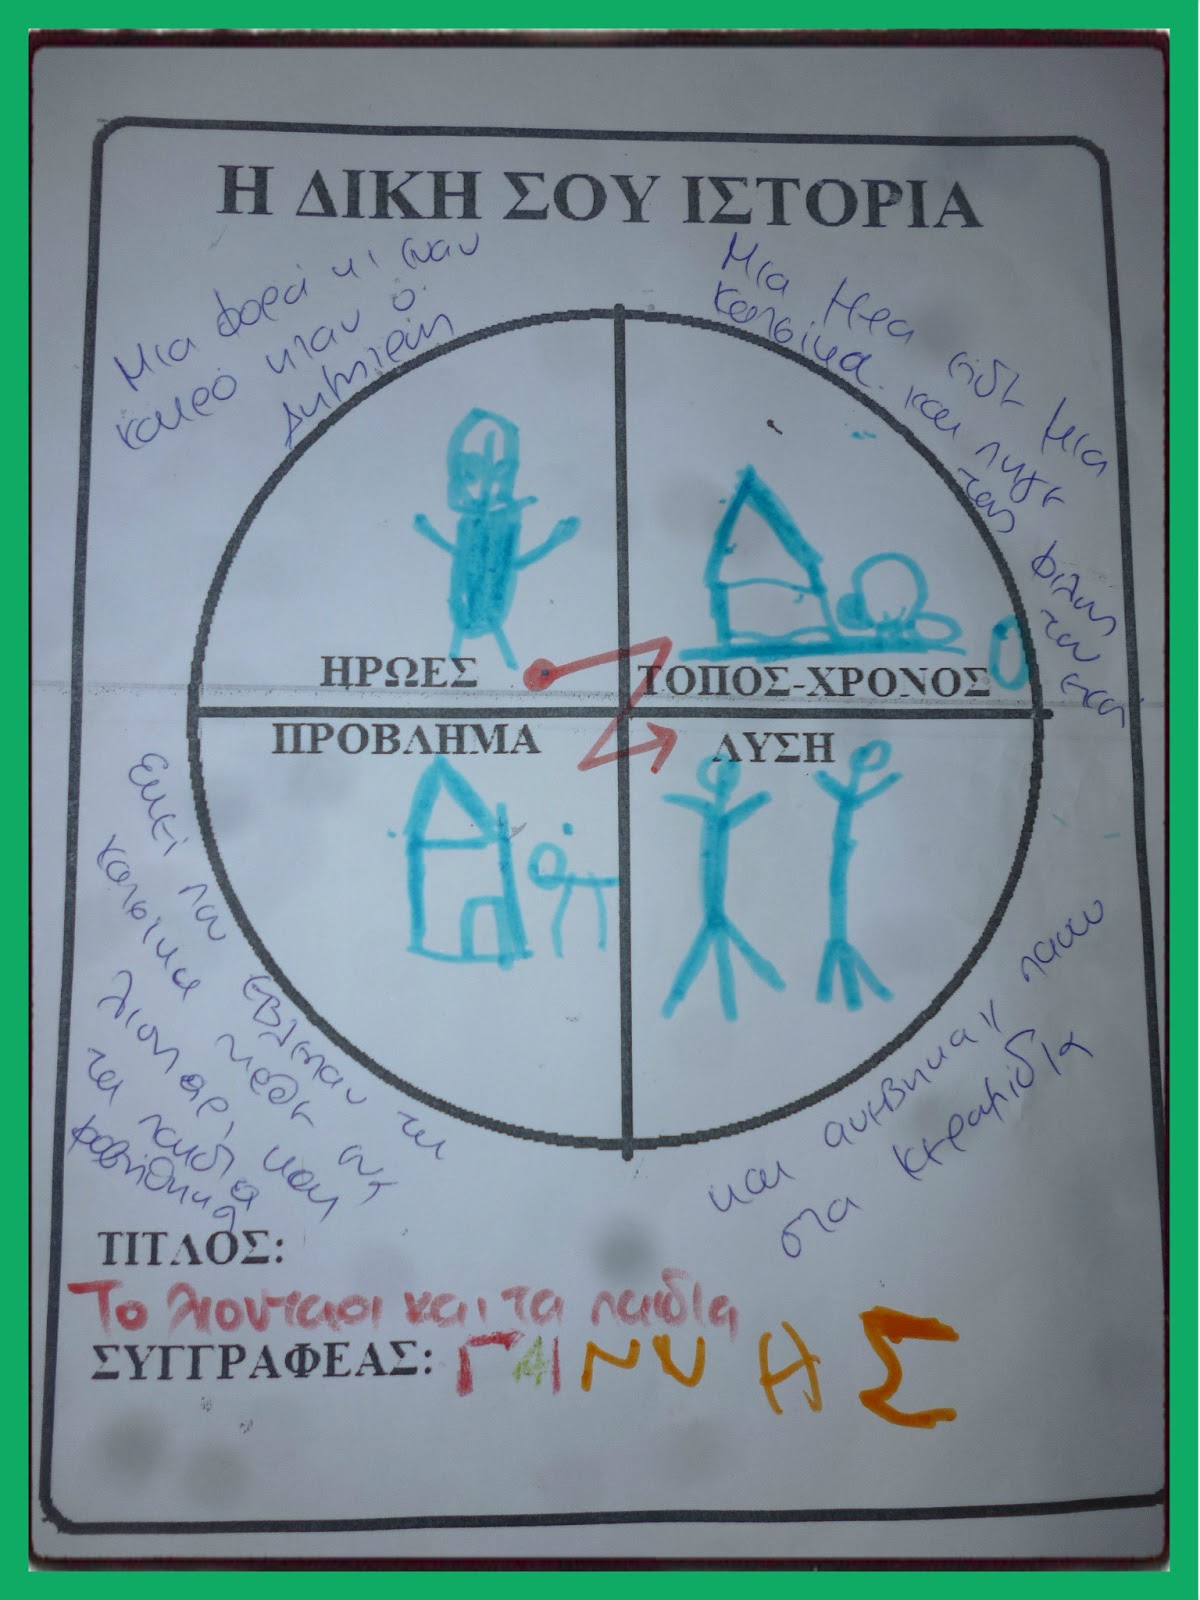 Η ΔΙΚΗ ΣΟΥ ΙΣΤΟΡΙΑ
Μια φορά κι έναν
καιρό ήταν ο
Δημήτρης
Μια μέρα είδε μια
κατσίκα και πήγε
τους φίλους του εκεί
ΗΡΩΕΣ
ΤΟΠΟΣ-ΧΡΟΝΟΣ
ΠΡΟΒΛΗΜΑ
ΛΥΣΗ
Εκεί που έβλεπαν τη
κατσίκα ήρθε ένα
λιοντάρι και
τα παιδιά
φοβήθηκαν
και ανέβηκαν πάνω
στα κεραμίδια
ΤΙΤΛΟΣ:
Το λιονταρι και τα παιδια
ΣΥΓΓΡΑΦΕΑΣ: